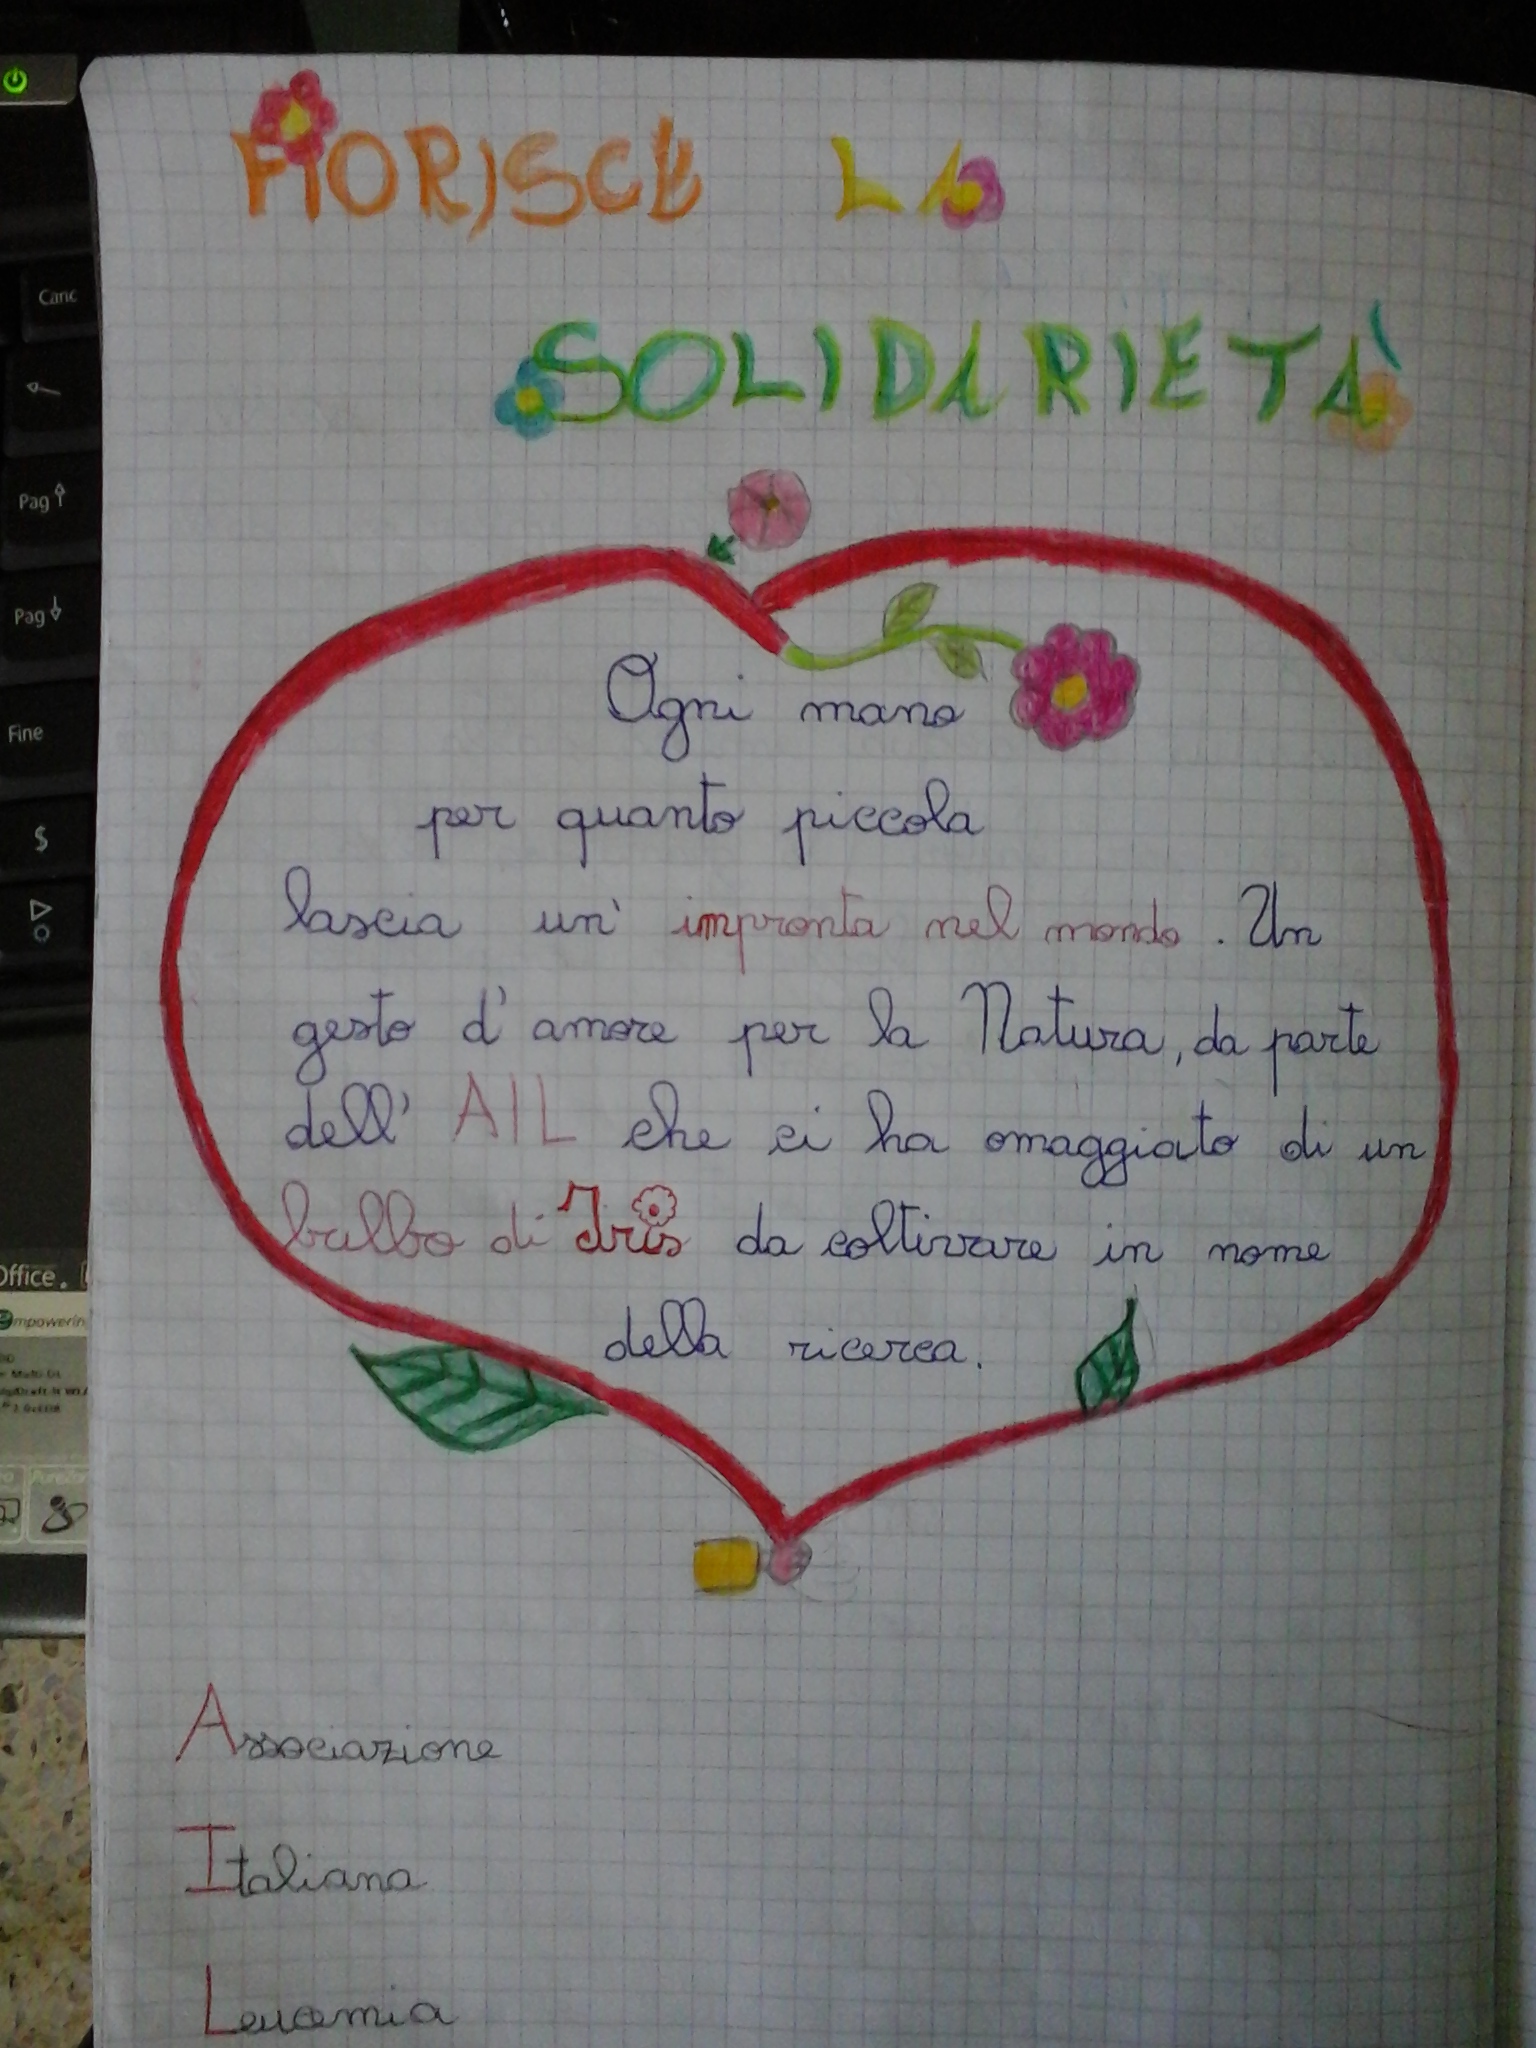 FIORISCE LA
SOLIDARIETÀ
Ogni mano
per quanto piccola
lascia un' impronta nel mondo. Un
gesto d'amore per la Natura, da parte
dell' AIL che ci ha omaggiato di un
bulbo di Iris da coltivare in nome
della ricerca.
Associazione
Italiana
Leucemia
Canc
Pag
Pag
Fine
$
Office.